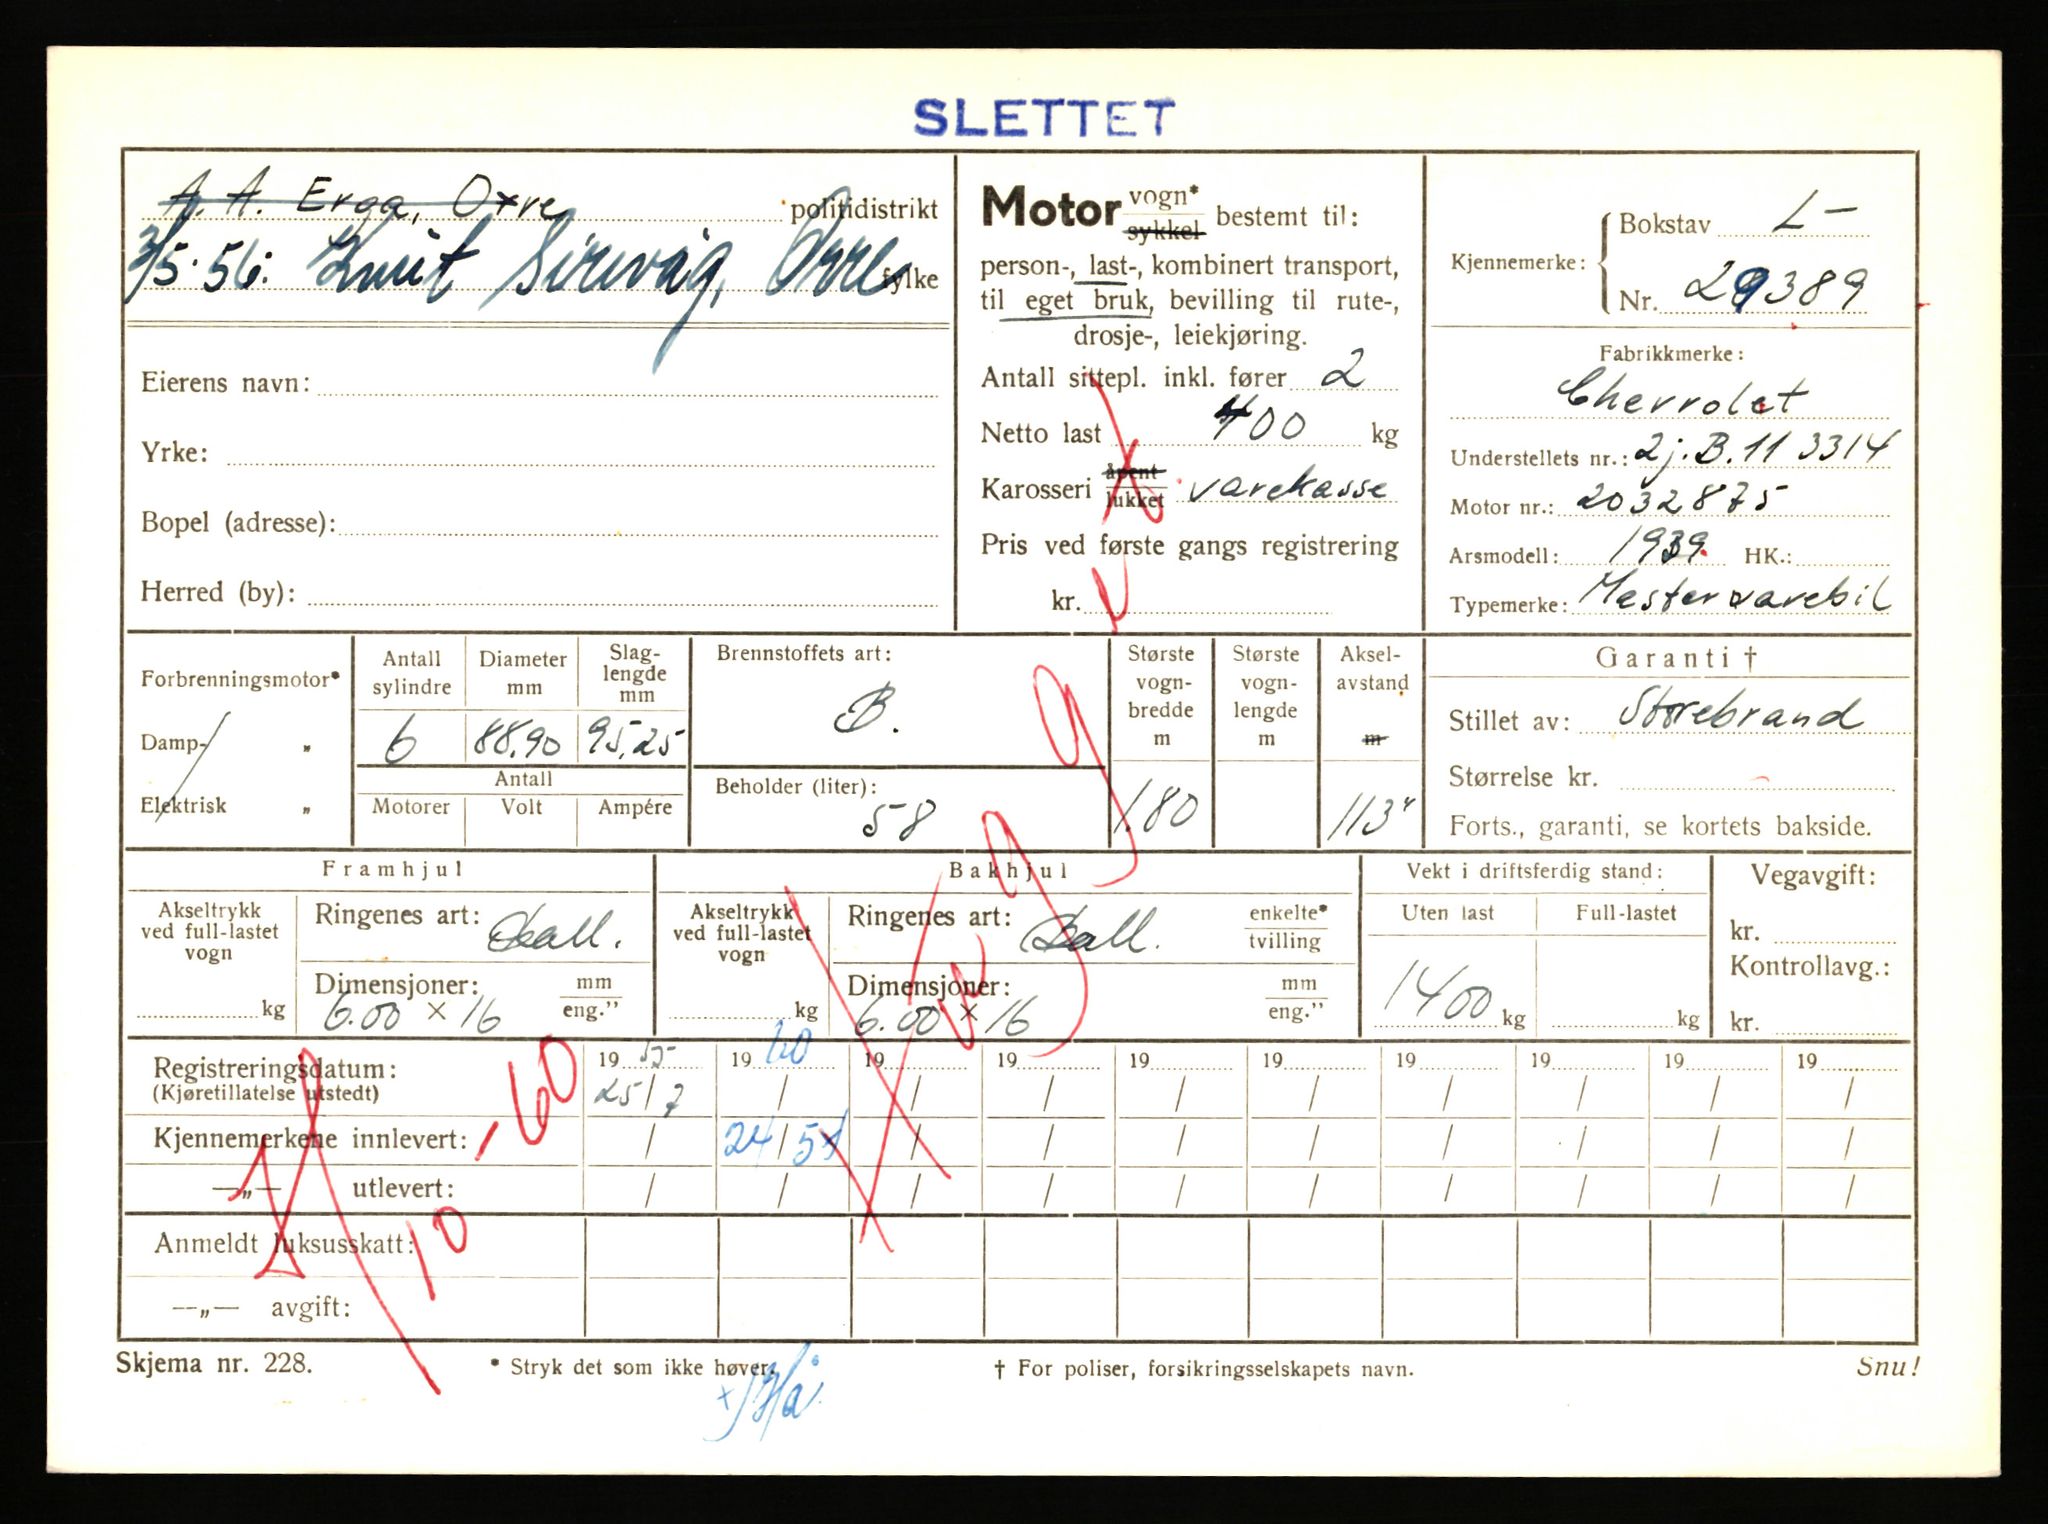 SLETTET
A. A. Erga, Orre politidistrikt
3/5-56: Knut Sirevåg, Orre fylke
Eierens navn:
Yrke:
Bopel (adresse):
Herred (by):
Motor vogn* sykkel bestemt til:
person-, last-, kombinert transport,
til eget bruk, bevilling til rute-,
drosje-, leiekjøring.
Antall sittepl. inkl. fører 2
Netto last 400 kg
Karosseri åpent lukket varekasse
Pris ved første gangs registrering
kr.
Kjennemerke: Bokstav L-
Nr. 29389
Fabrikkmerke:
Chevrolet
Understellets nr.: 2j.B.11 3314
Motor nr.: 2032875
Årsmodell: 1939. HK.:
Typemerke: Mestervarebil
Forbrenningsmotor*
Damp- „
Elektrisk „
Antall sylindre 6
Diameter mm 88.90
Slaglengde mm 95,25
Antall
Motorer Volt Ampére
Brennstoffets art:
B.
Beholder (liter):
58
Største vognbredde m 1.80
Største vognlengde m
Akselavstand m 113"
Garanti †
Stillet av: Storebrand
Størrelse kr.
Forts., garanti, se kortets bakside.
Framhjul
Akseltrykk ved full-lastet vogn
kg
Ringenes art: Ball.
Dimensjoner: mm eng.”
6.00 × 16
Bakhjul
Akseltrykk ved full-lastet vogn
kg
Ringenes art: Ball. enkelte* tvilling
Dimensjoner: mm eng.”
6.00 × 16
Vekt i driftsferdig stand:
Uten last Full-lastet
1400 kg kg
Vegavgift:
kr.
Kontrollavg.:
kr.
Registreringsdatum: 19 55 19 60 19 19 19 19 19 19 19 19
(Kjøretillatelse utstedt) 25/7 / / / / / / / / /
Kjennemerkene innlevert: / 24/5 / / / / / / / /
—„— utlevert: / / / / / / / / / /
Anmeldt luksusskatt:
—„— avgift:
/10-60
Skjema nr. 228. * Stryk det som ikke høver. † For poliser, forsikringsselskapets navn. Snu!